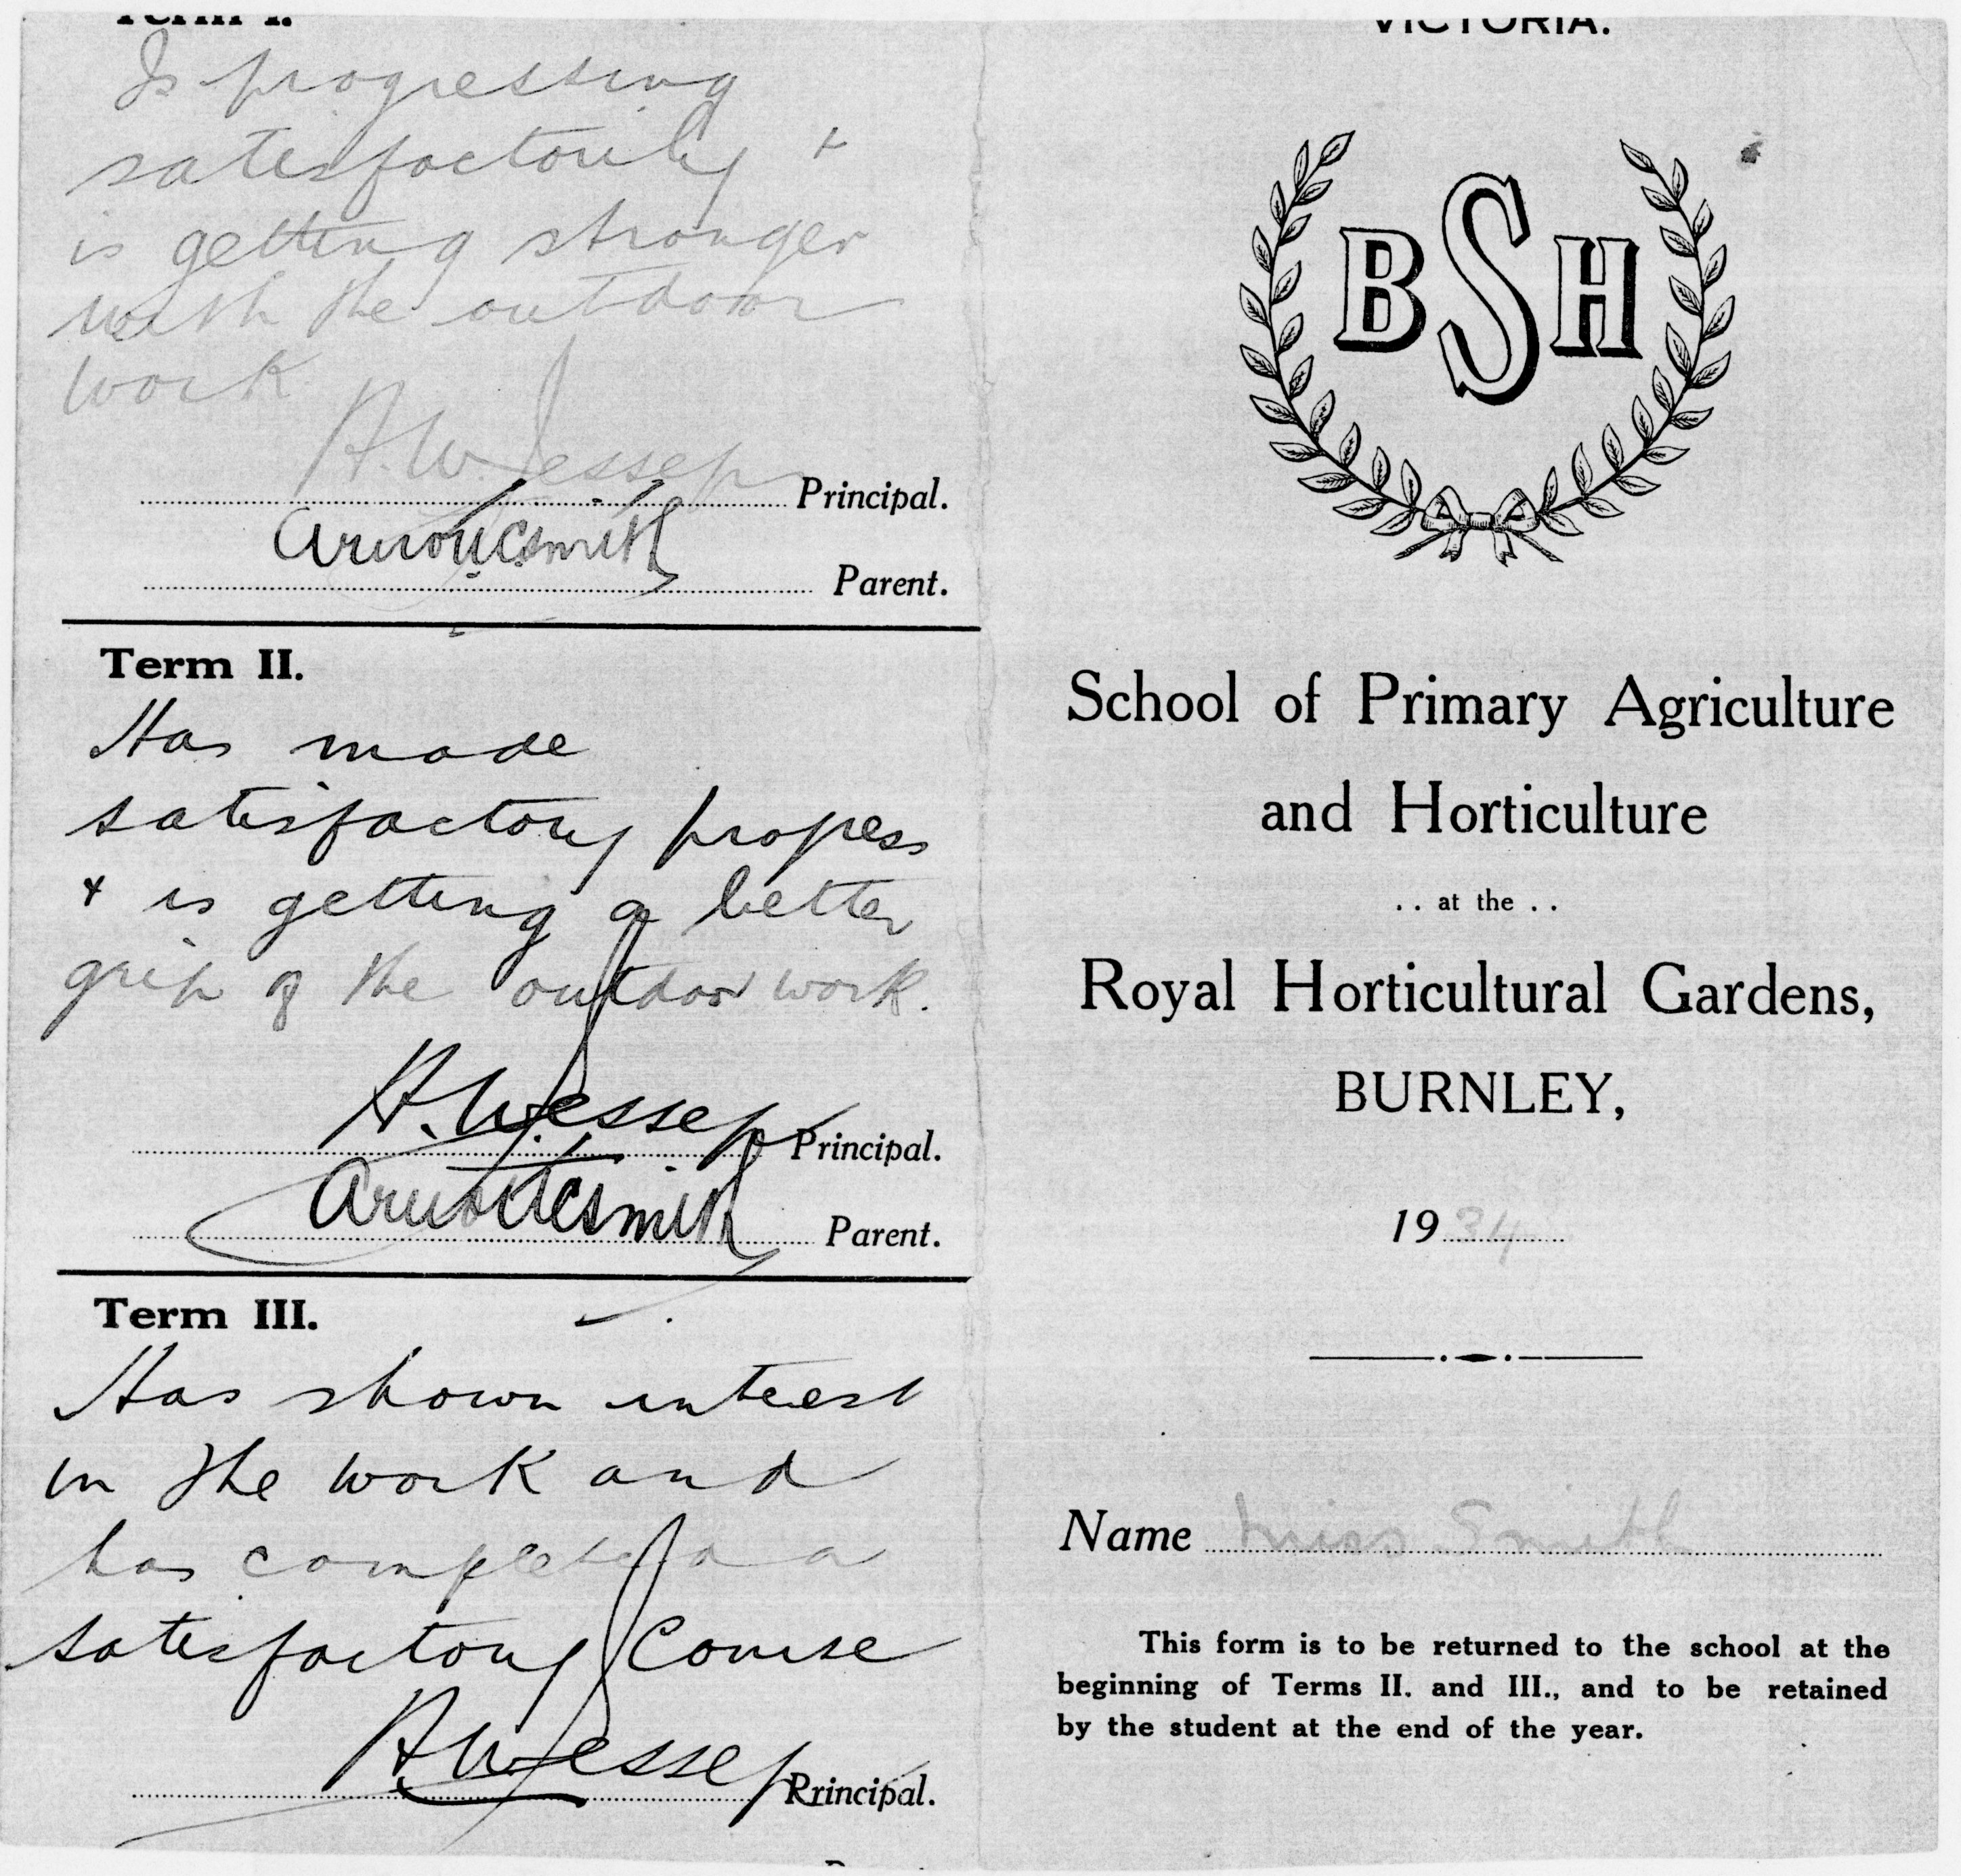 Term I.
Is progressing
satisfactorily +
is getting stronger
with the outdoor
work
A.W. Jessep
Principal.
Parent.
Term II.
Has made
satisfactory progress
+ is getting a better
grip of the outdoor work.
A.W. Jessep
Principal.
Parent.
Term III.
Has shown interest
in the work and
has completed a
satisfactory Course
A.W. Jessep
Principal.
VICTORIA.
BSH
School of Primary Agriculture
and Horticulture
.. at the ..
Royal Horticultural Gardens,
BURNLEY,
1934
Name Miss Smith
This form is to be returned to the school at the
beginning of Terms II. and III., and to be retained
by the student at the end of the year.